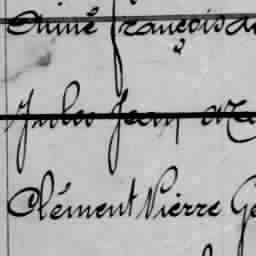 Aimé François
Jules Jean
Clément Pierre